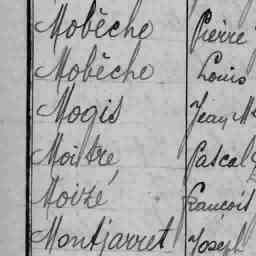 Mobèche Pierre
Mobèche Louis
Mogis Jean M
Moitré Pascal
Moizé François
Montjarret Joseph